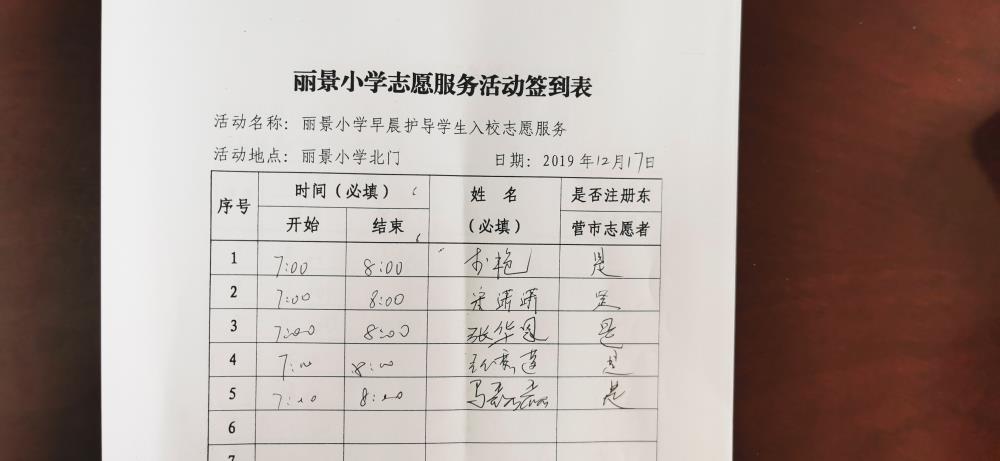 丽景小学志愿服务活动签到表
活动名称：丽景小学早晨护导学生入校志愿服务
活动地点：丽景小学北门 日期：2019年12月17日
序号 时间（必填） 姓名 是否注册东
开始 结束 （必填） 营市志愿者
1 7:00 8:00 艳 是
2 7:00 8:00 是
3 7:00 8:00 张华 是
4 7:00 8:00 是
5 7:00 8:00 马 是
6
7